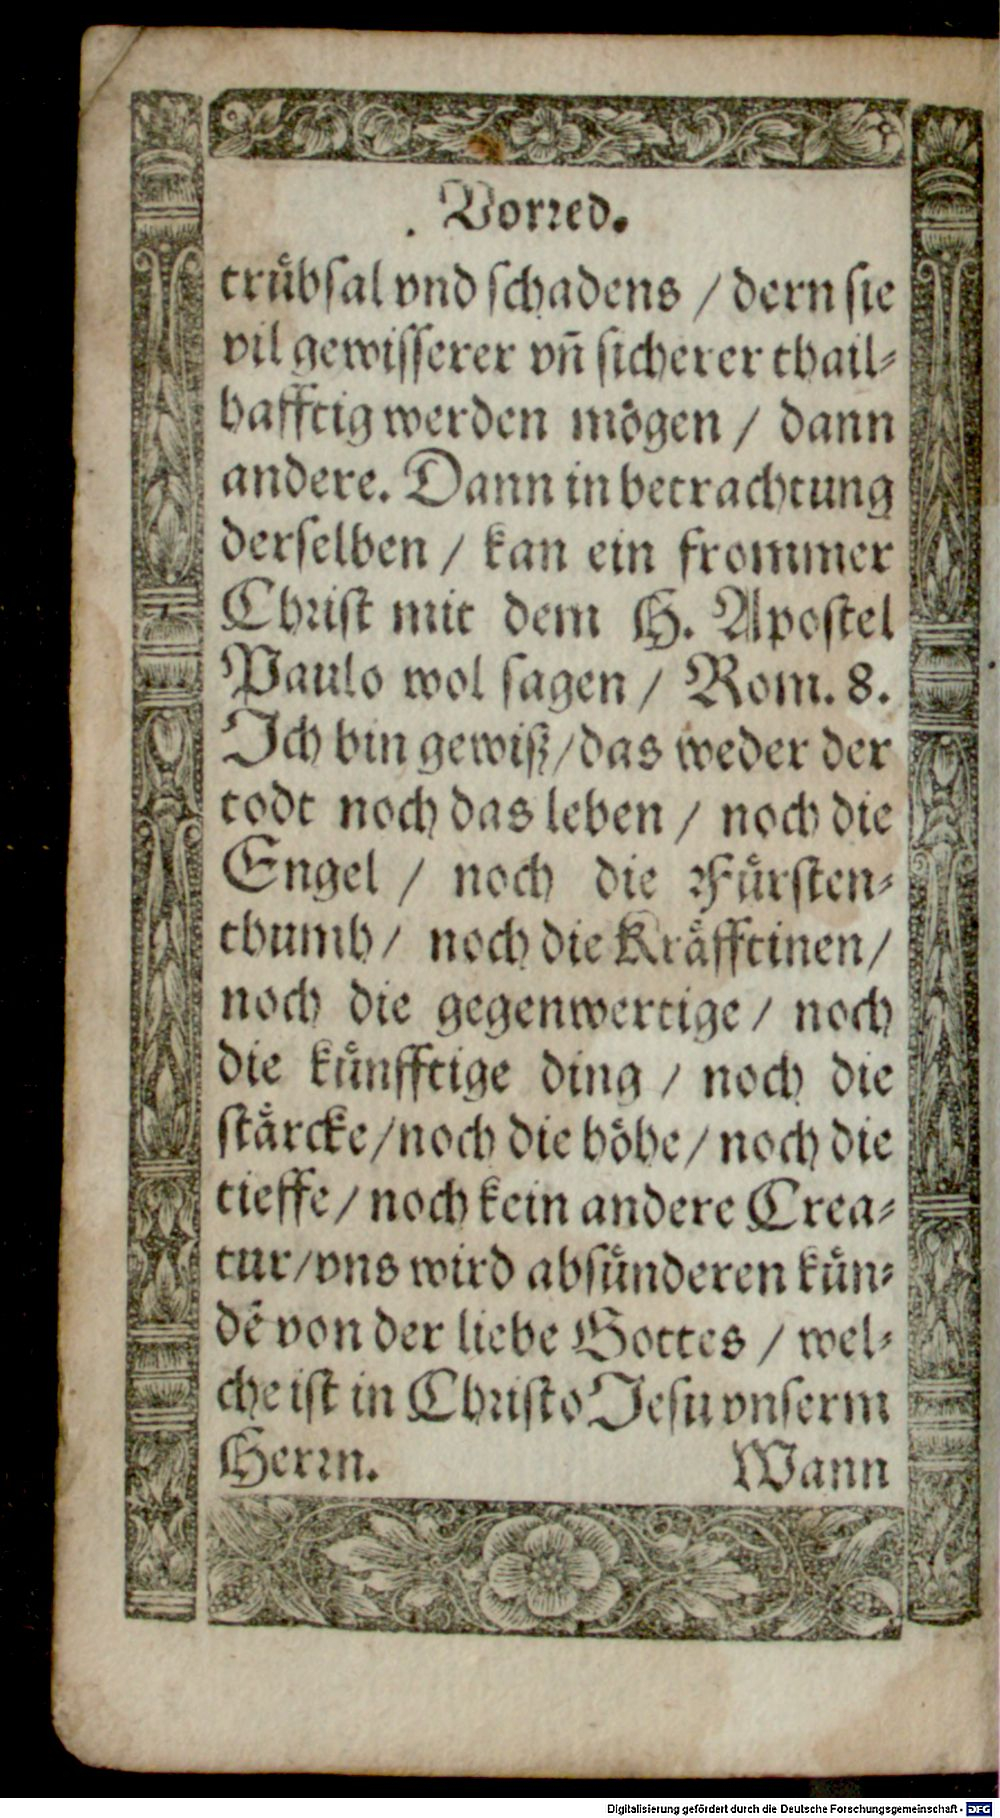 Vorred.
trübsal vnd schadens / dern sie
vil gewisserer vñ sicherer thail-
hafftig werden mögen / dann
andere. Dann in betrachtung
derselben / kan ein frommer
Christ mit dem H. Apostel
Paulo wol sagen / Rom. 8.
Ich bin gewiß / das weder der
todt noch das leben / noch die
Engel / noch die Fürsten-
thumb / noch die Kräfftinen /
noch die gegenwertige / noch
die künfftige ding / noch die
stärcke / noch die höhe / noch die
tieffe / noch kein andere Crea-
tur / vns wird absünderen kün-
dẽ von der liebe Gottes / wel-
che ist in Christo Jesu vnserm
Herrn. Wann
Digitalisierung gefördert durch die Deutsche Forschungsgemeinschaft - DFG